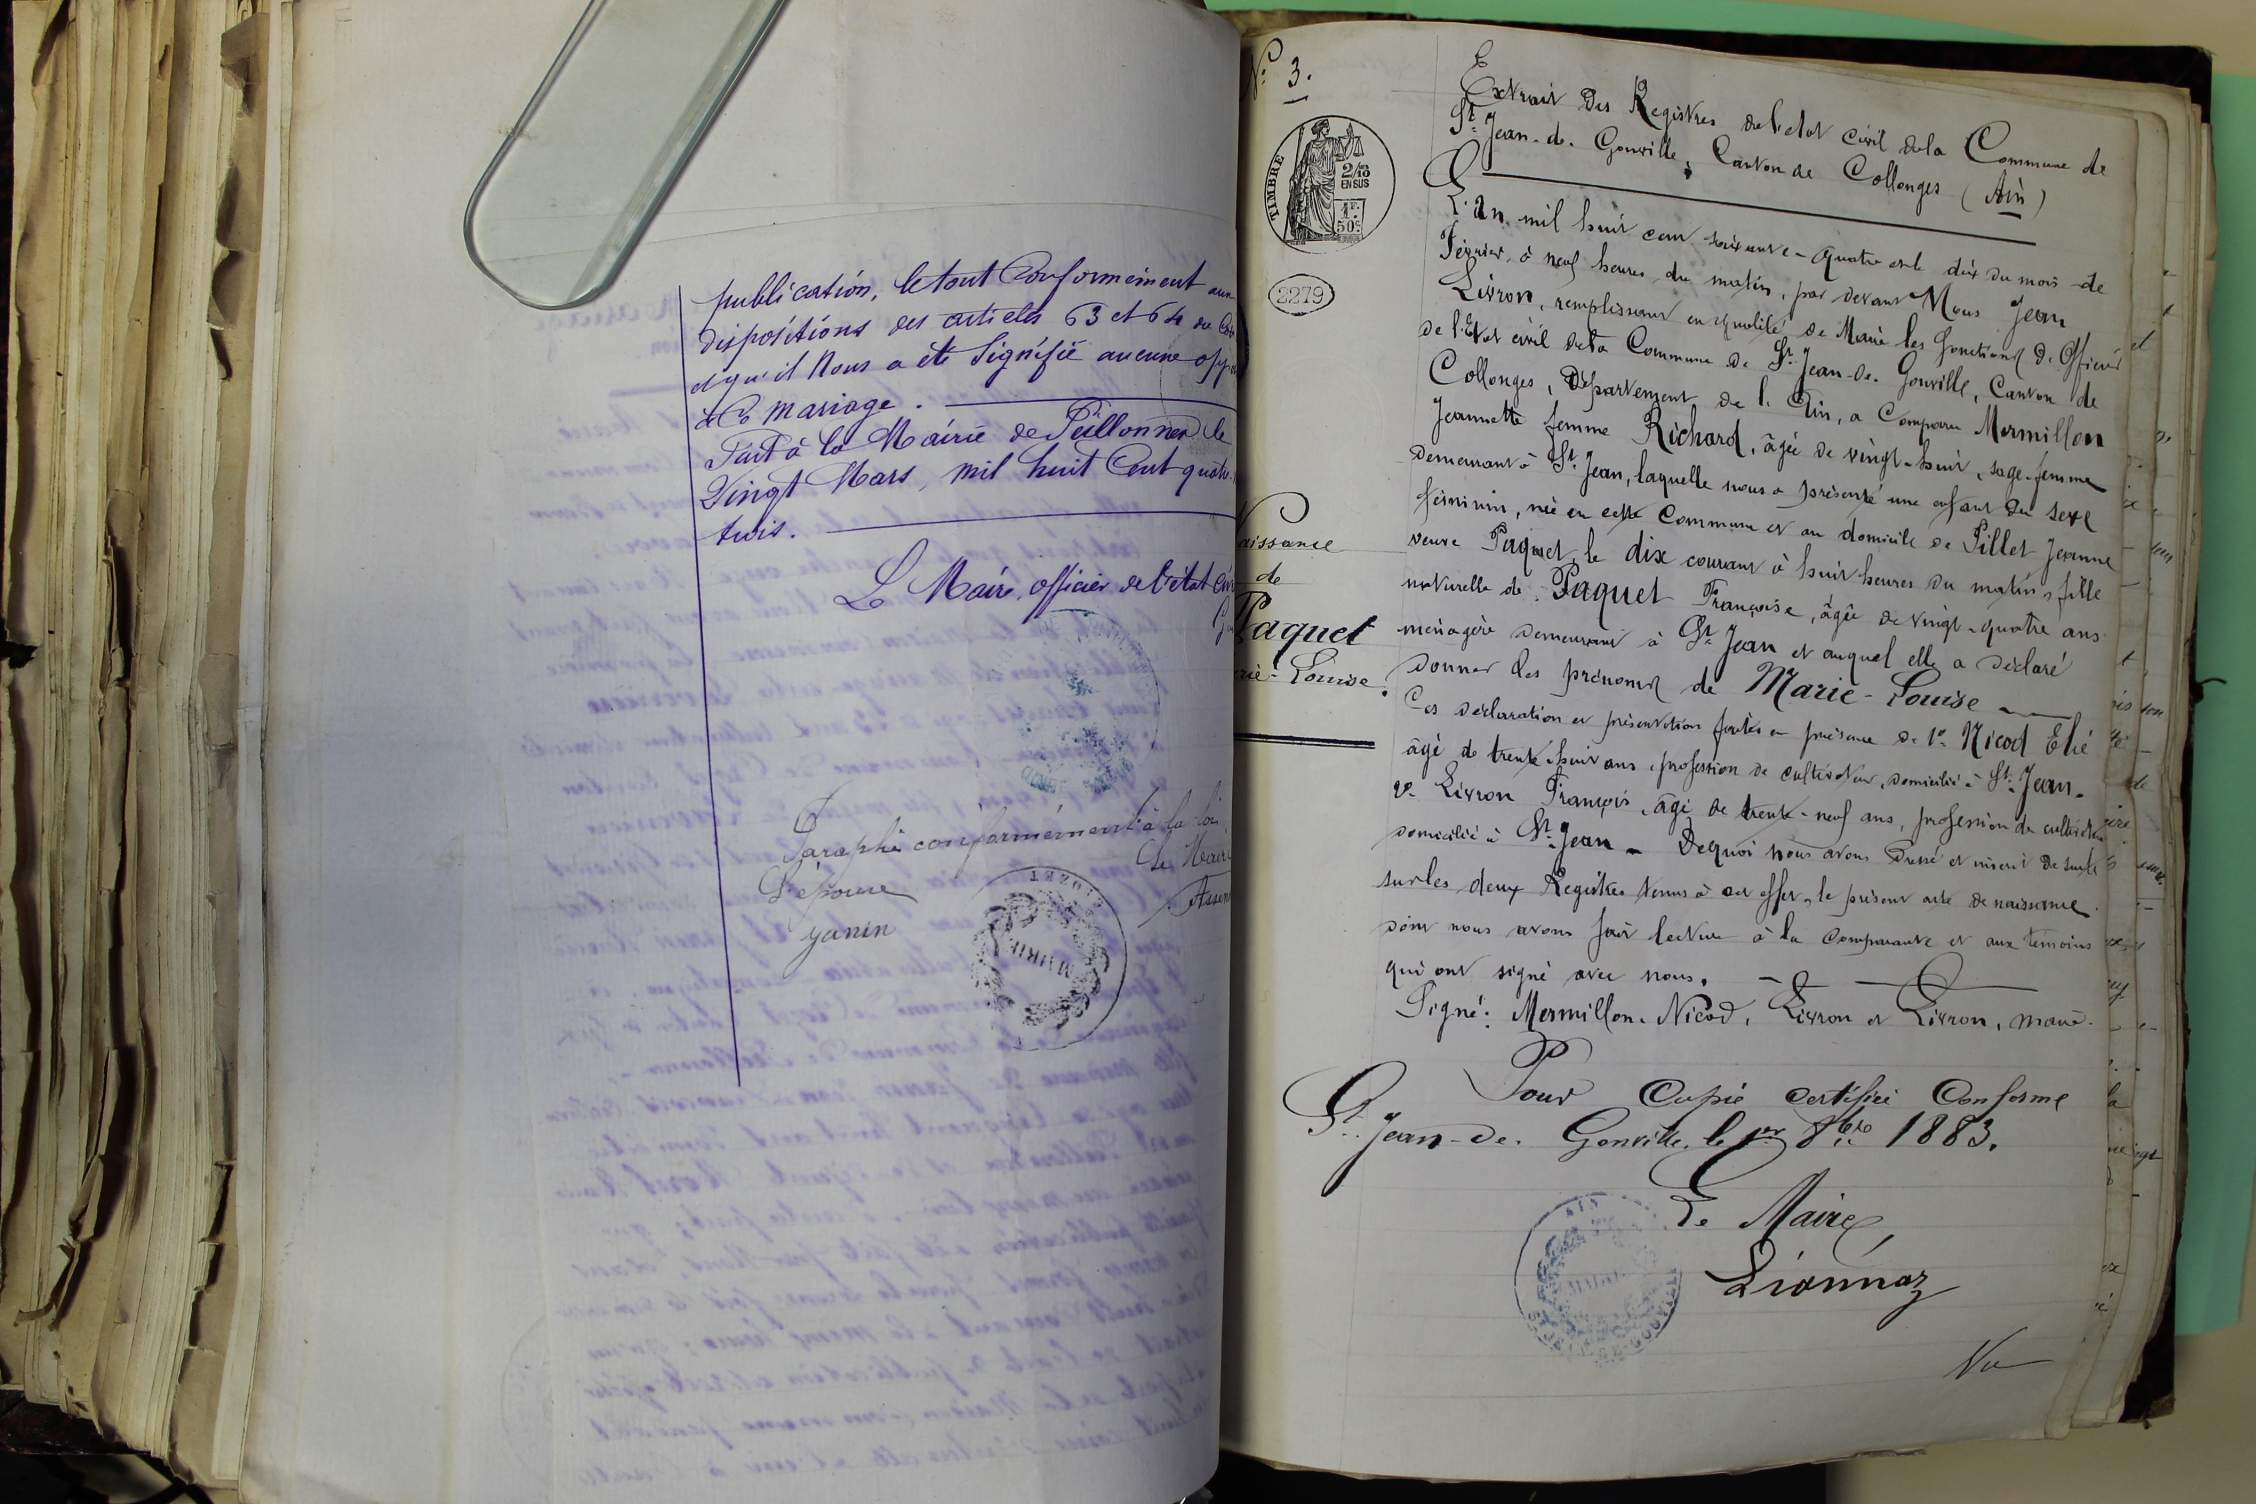 publication, le tout Conformément aux
dispositions des articles 63 et 64 du
et qu'il Nous a été Signifié aucune
à Ce mariage.
Fait à la Mairie de Peillonnex le
Vingt Mars, mil huit Cent quatre
trois.
Le Maire, officier de l'état
Paraphé conformément à la loi
L'épouse
Le Maire
Janin
MAIRIE
N° 3.
TIMBRE
2/10
EN SUS
1F.
50c
2279
Extrait des Registres de l'etat civil de la Commune de
St Jean-de-Gonville, Canton de Collonges (Ain)
L'an mil huit cent soixante-quatre et le dix du mois de
Février, à neuf heures du matin, par devant Nous Jean
Livron, remplissant en qualité de Maire les fonctions d'Officier
de l'Etat civil de la Commune de St Jean-de-Gonville, Canton de
Collonges, Département de l'Ain, a comparu Mermillon
Jeannette femme Richard, âgée de vingt-huit, sage-femme
demeurant à St Jean, laquelle nous a présenté une enfant du sexe
féminin, née en cette Commune et au domicile de Pillet Jeanne
veuve Paquet, le dix courant à huit heures du matin, fille
naturelle de Paquet Françoise, âgée de vingt-quatre ans
ménagère demeurant à St Jean et auquel elle a déclaré
donner les prénoms de Marie-Louise
Ces déclaration et présentation faites en présence de 1° Nicod Elié
âgé de trente-huit ans, profession de cultivateur, domicilié à St Jean.
2° Livron François, âgé de trente-neuf ans, profession de cultivateur
domicilié à St Jean - Dequoi nous avons dressé et inscrit de suite
sur les deux Registres tenus à cet effet, le présent acte de naissance
dont nous avons fait lecture à la comparante et aux témoins
qui ont signé avec nous.
Signé: Mermillon, Nicod, Livron et Livron, maire.
Naissance
de
Paquet
Louise.
Pour Copie certifiée Conforme
St Jean-de-Gonville, le 1er 8bre 1883.
Le Maire,
Lionnaz
AIN
MAIRIE
Vu